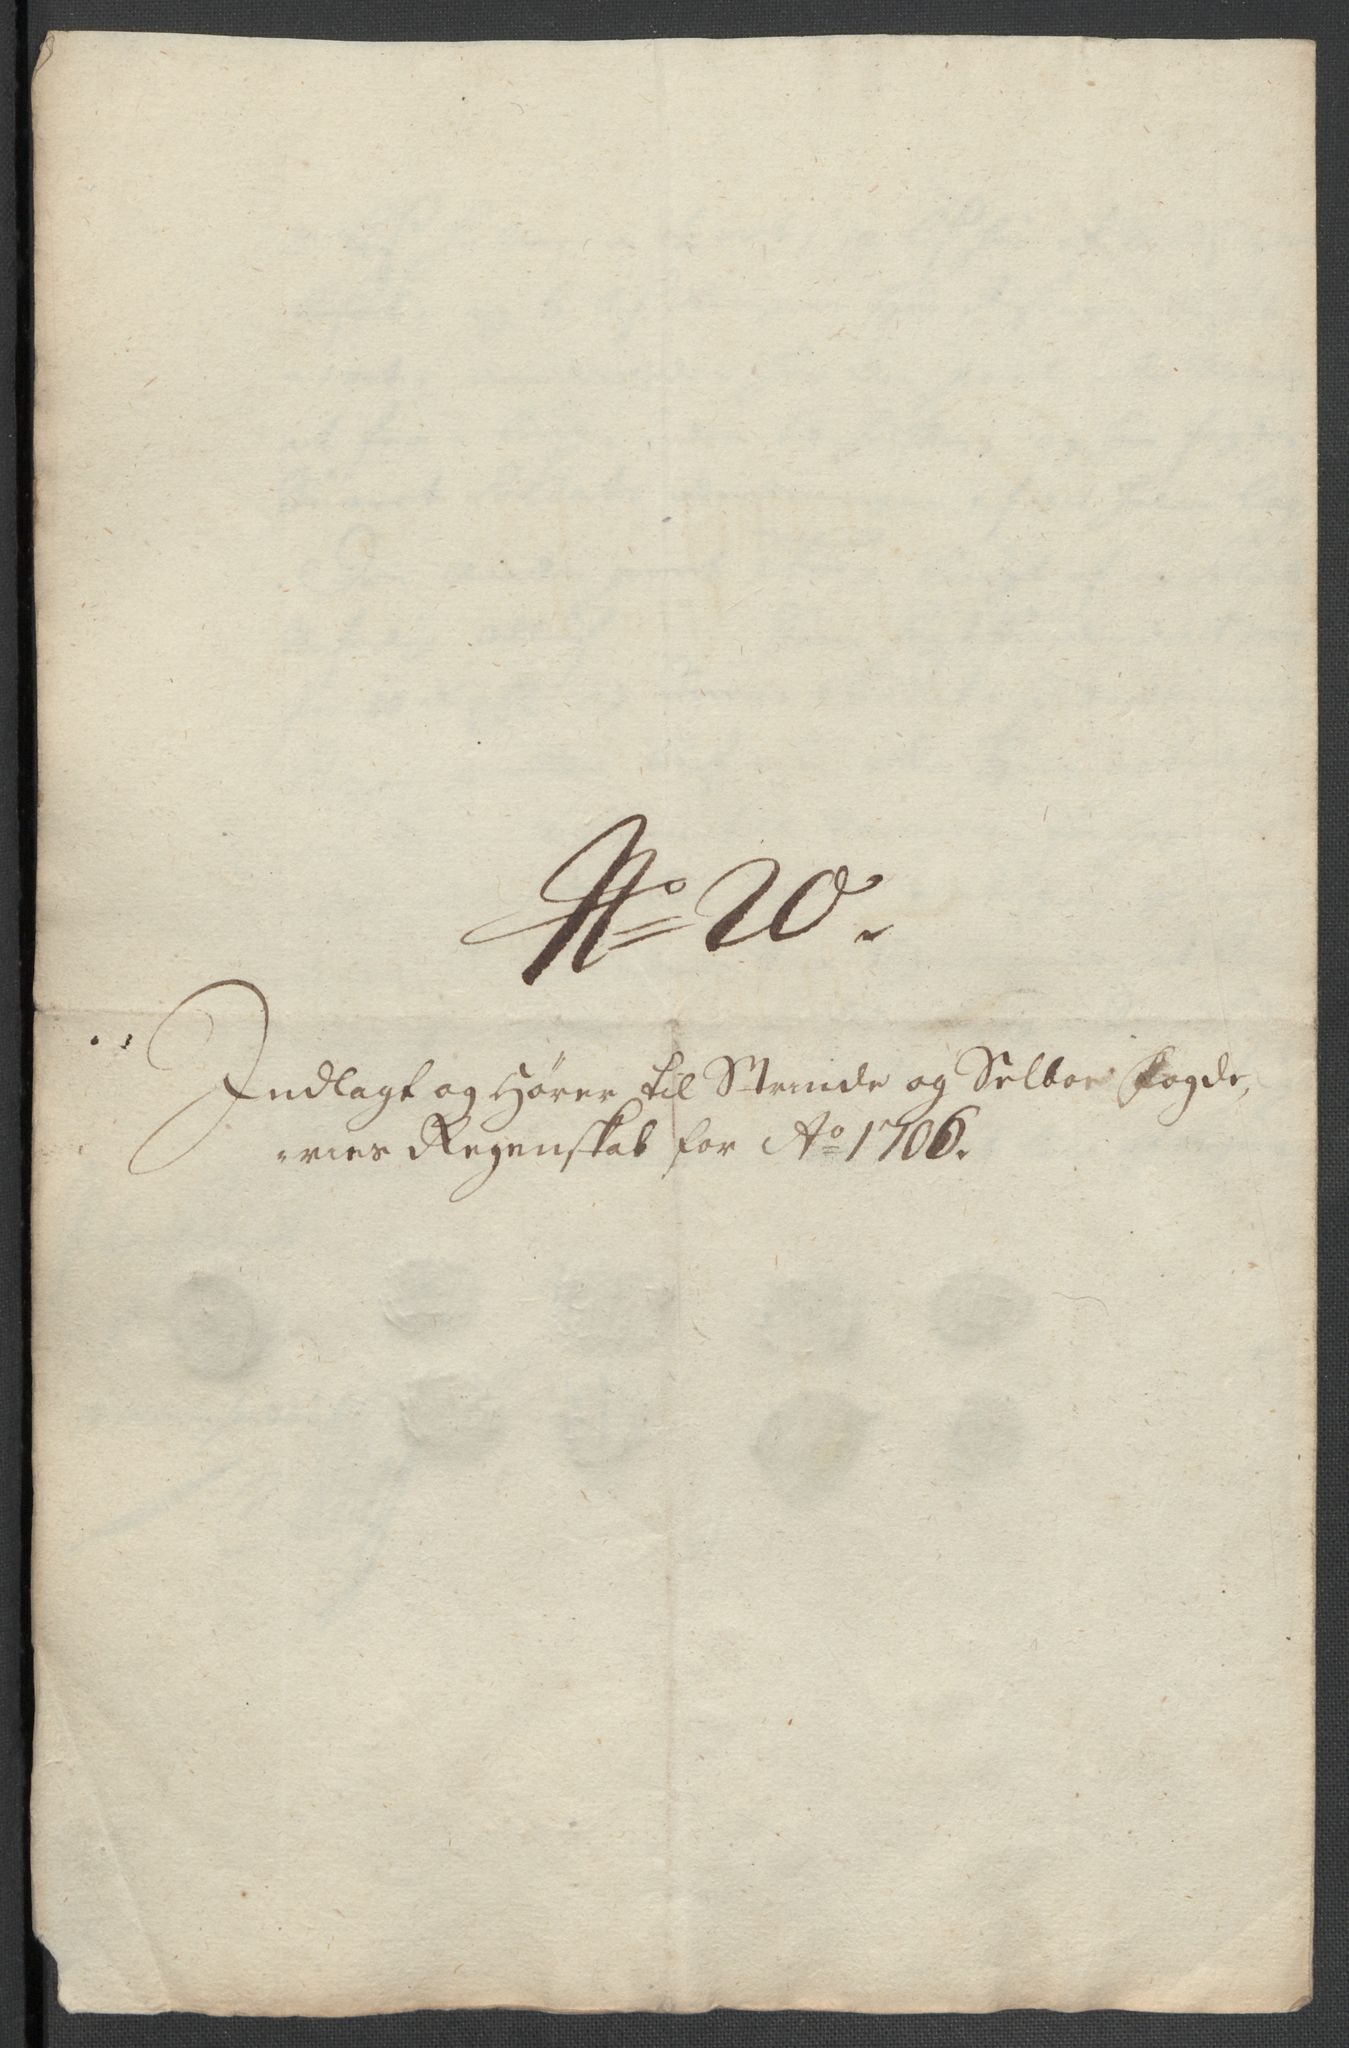 No 20.
Indlagt og Hører til Strinde og Selboe fogde,
„ries Regenskab for Ao 1706.